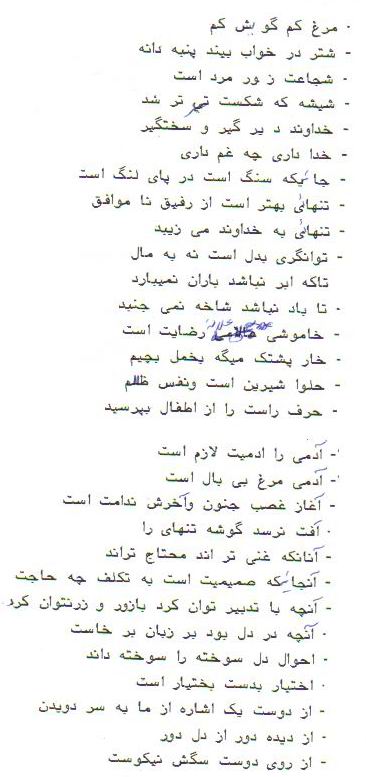 · مرغ کم گو ېش کم
- شتر در خواب بیند پنبه دانه
· شجاعت ز ور مرد است
- شیشه که شکست تیر تر شد
- خداوند د یر گیر و سختگیر
خدا داری چه غم داری
- جا ئیکه سنگ است در پای لنگ است
- تنهائی بهتر است از رفیق نا موافق
- تنهائی به خداوند می زیبد
- توانگری بدل است نه به مال
تاکه ابر نباشد باران نمیبارد
· تا باد نباشد شاخه نمی جنبد
- خاموشی علامه رضایت است
- خار پشتک میگه بخمل بچیم
- حلوا شیرین است ونفس ظالم
- حرف راست را از اطفال بپرسید
- آدمی را ادمیت لازم است
- آدمی مرغ بی بال است
- آغاز غصب جنون وآخرش ندامت است
· آفت نرسد گوشه تنهای را
- آنانکه غنی تر اند محتاج تراند
- آنجائیکه صمیمیت است به تکلف چه حاجت
- آنچه با تدبیر توان کرد بازور و زرنتوان کرد
· آنچه در دل بود بر زبان بر خاست
- احوال دل سوخته را سوخته داند
· اختیار بدست بختیار است
- از دوست یک اشاره از ما به سر دویدن
- از دیده دور از دل دور
- از روی دوست سگش نیکوست